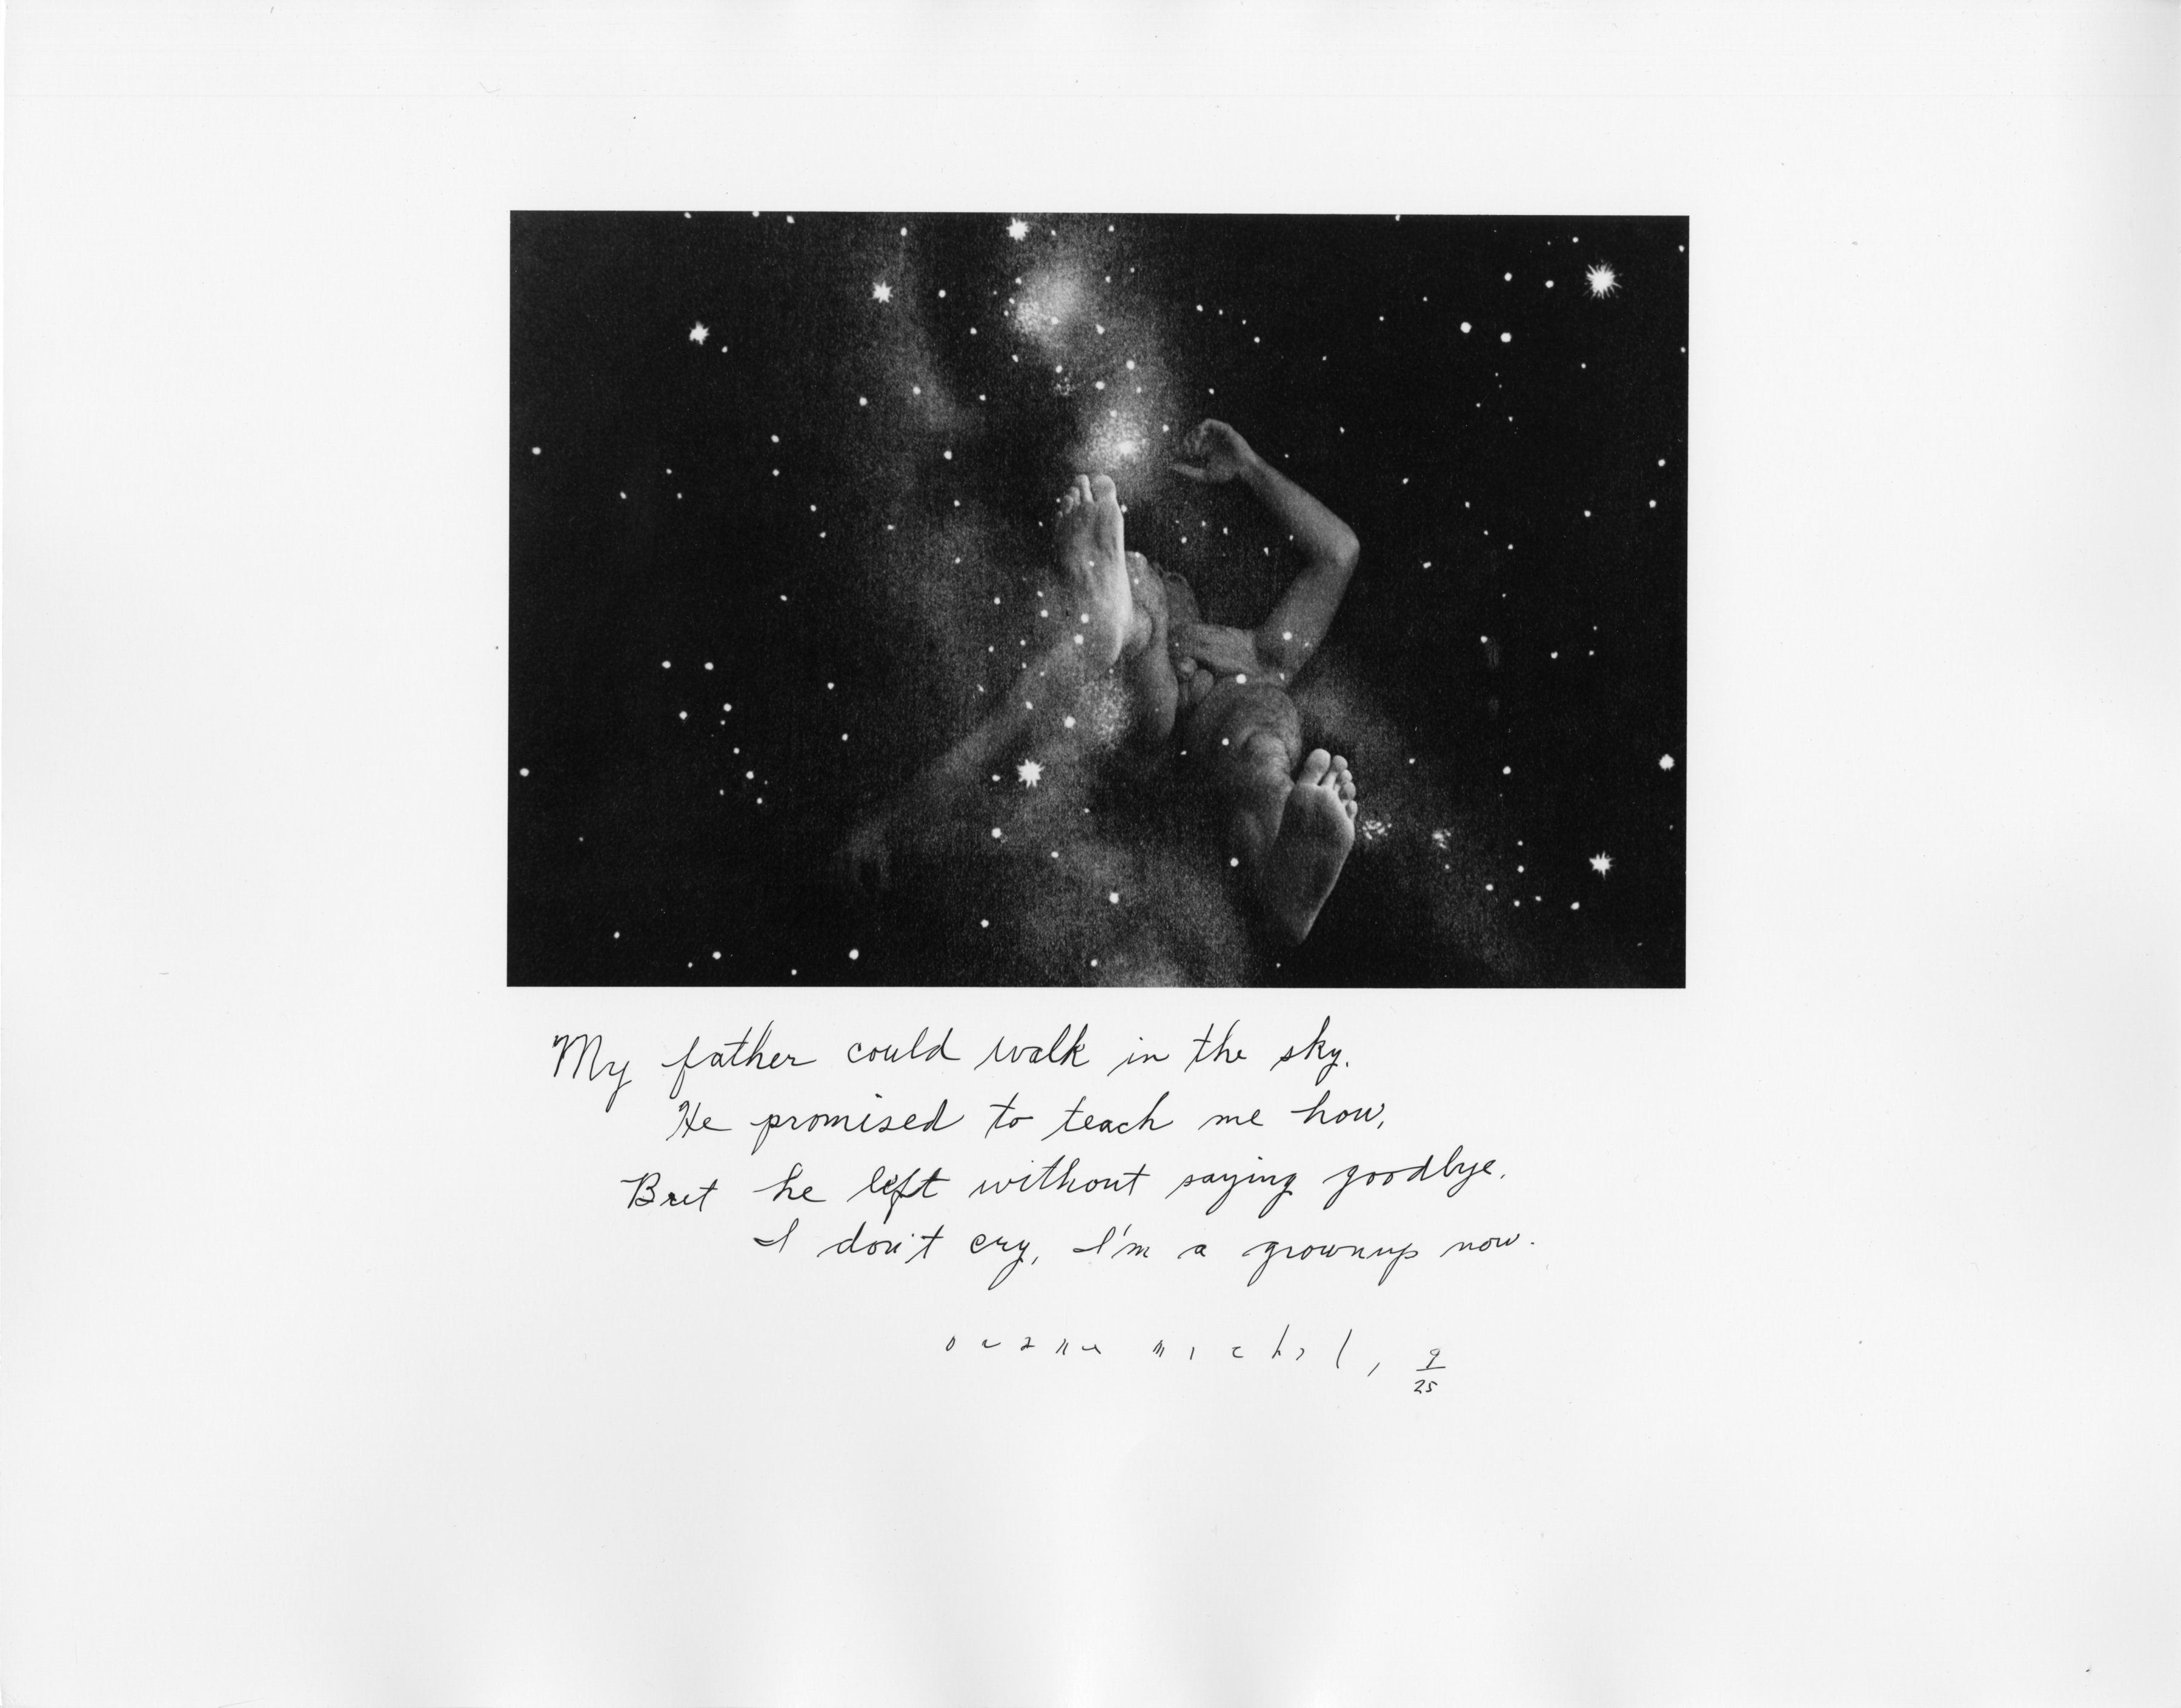 My father could walk in the sky.
He promised to teach me how,
But he left without saying goodbye.
I don't cry, I'm a grownup now.
duane michals, 9/25